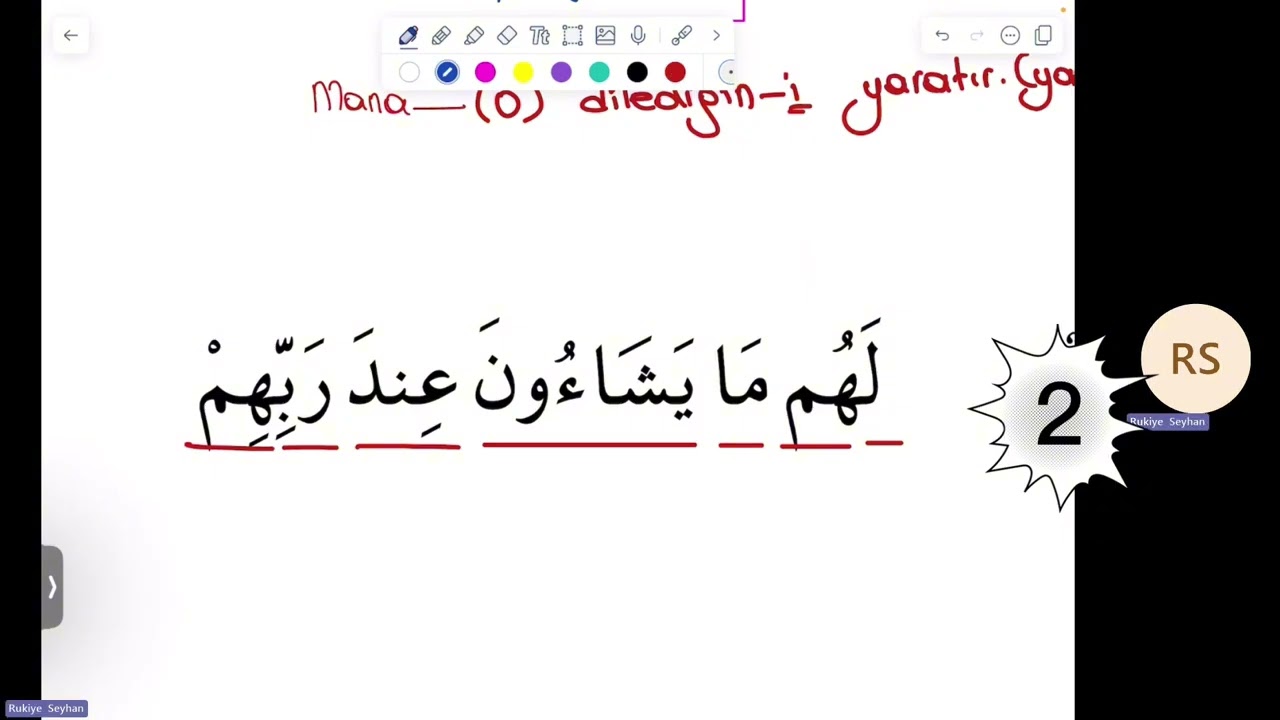 Tt
Mana—(O) dilediğin-i yaratır.
لَهُم مَا يَشَاءُونَ عِندَ رَبِّهِمْ
2
RS
Rukiye Seyhan
Rukiye Seyhan